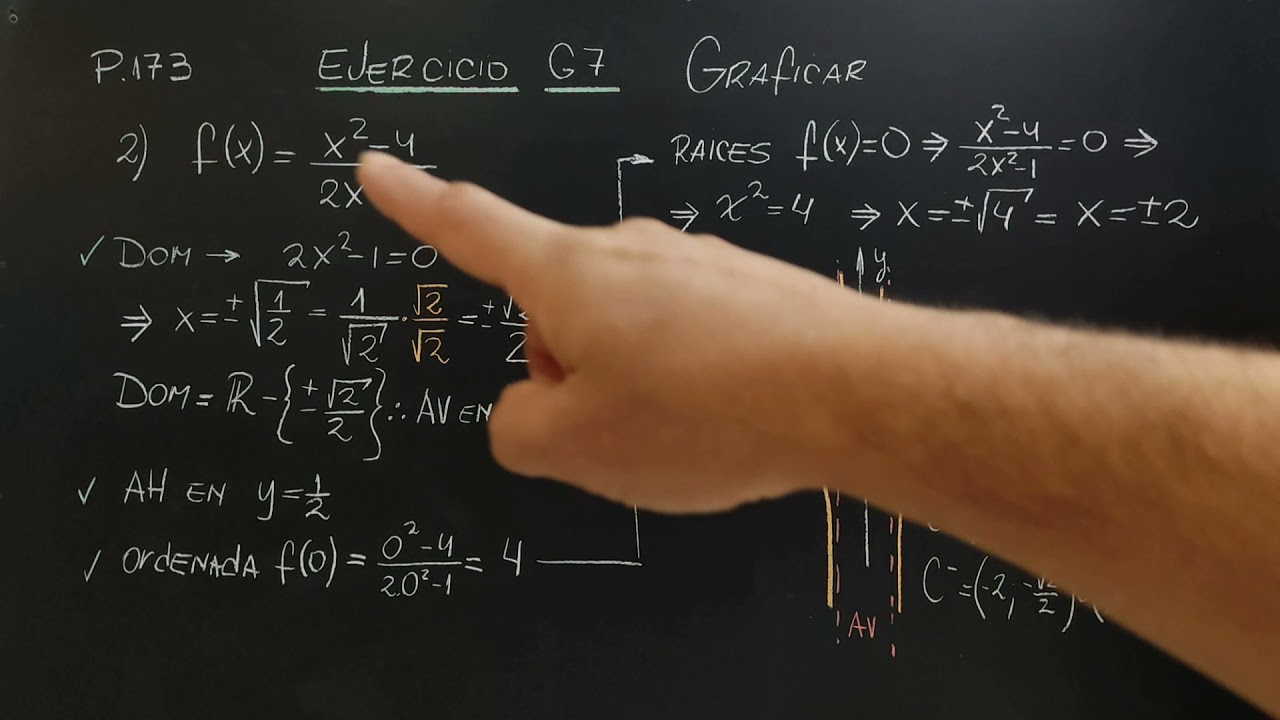 P.173 EJERCICIO G7 GRAFICAR
2) f(x) = x²-4 / 2x
✓ DOM → 2x²-1=0
⇒ x=±√(1/2) = 1/√2 · √2/√2 = ±√2/2
DOM = ℝ - {±√2/2} ∴ AV EN
✓ AH EN y=1/2
✓ ORDENADA f(0) = 0²-4 / 2.0²-1 = 4
RAICES f(x)=0 ⇒ x²-4 / 2x²-1 = 0 ⇒
⇒ x²=4 ⇒ x=±√4 = x=±2
y
C⁻=(-2, -√2/2)
AV